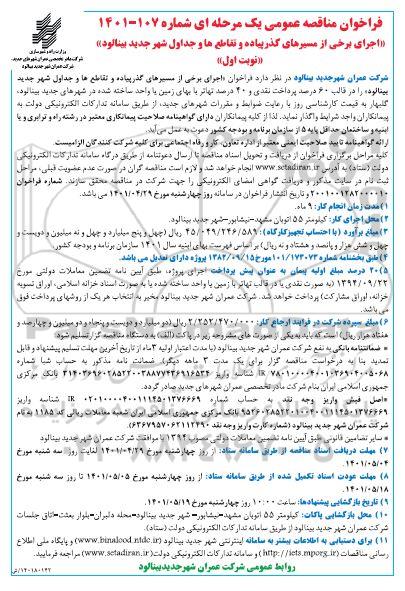 فراخوان مناقصه عمومی یک مرحله ای شماره ۱۰۷-۱۴۰۱
«اجرای برخی از مسیرهای گذرپیاده و تقاطع ها و جداول شهر جدید بینالود»
«نوبت اول»
وزارت راه و شهرسازی
شرکت مادر تخصصی عمران شهرهای جدید
شرکت عمران شهر جدید بینالود
شرکت عمران شهرجدید بینالود در نظر دارد فراخوان «اجرای برخی از مسیرهای گذرپیاده و تقاطع ها و جداول شهر جدید
بینالود» را در قالب ۶۰ درصد پرداخت نقدی و ۴۰ درصد تهاتر با بهای زمین یا واحد ساخته شده در شهرهای جدید بینالود،
گلبهار به قیمت کارشناسی روز با رعایت ضوابط و مقررات شهرهای جدید، از طریق سامانه تدارکات الکترونیکی دولت به
پیمانکاران واجد شرایط واگذار نماید. لذا از کلیه پیمانکاران دارای گواهینامه صلاحیت پیمانکاری معتبر در رشته راه و ترابری و یا
ابنیه و ساختمان حداقل پایه ۵ از سازمان برنامه و بودجه کشور دعوت به عمل می‌آید.
ارائه گواهینامه تایید صلاحیت ایمنی معتبر از اداره تعاون، کار و رفاه اجتماعی برای کلیه شرکت کنندگان الزامیست.
کلیه مراحل برگزاری فراخوان از دریافت و تحویل اسناد مناقصه تا ارسال دعوتنامه از طریق درگاه سامانه تدارکات الکترونیکی
دولت (ستاد) به آدرس www.setadiran.ir انجام خواهد شد و لازم است مناقصه گران در صورت عدم عضویت قبلی، مراحل
ثبت نام در سایت مذکور و دریافت گواهی امضای الکترونیکی را جهت شرکت در مناقصه محقق سازند. شماره فراخوان
و تاریخ انتشار فراخوان در سامانه روز چهارشنبه مورخ ۱۴۰۱/۰۴/۲۹ می باشد.
۱) مدت زمان انجام کار: ۹ ماه.
۲) محل اجرای کار: کیلومتر ۵۵ اتوبان مشهد-نیشابور-شهر جدید بینالود.
۳) مبلغ برآورد (با احتساب تجهیزکارگاه): ۴۵/۰۴۹/۲۴۶/۵۸۹ ریال (چهل و پنج میلیارد و چهل و نه میلیون و دویست و
چهل و شش هزار و پانصد و هشتاد و نه ریال) بر اساس فهرست بهای ابنیه سال ۱۴۰۱ سازمان برنامه و بودجه کشور.
۴) طبق بخشنامه شماره ۱۰۱/۱۷۳۰۷۳ مورخ ۱۳۸۲/۰۹/۱۵ پروژه دارای تعدیل می باشد.
۵) ۲۰ درصد مبلغ اولیه پیمان به عنوان پیش پرداخت اجرای پروژه، طبق آیین نامه تضمین معاملات دولتی مورخ
۱۳۹۴/۰۹/۲۲ (به صورت نقدی یا در قالب تهاتر با زمین یا واحد ساخته شده یا به صورت اسناد خزانه اسلامی، اوراق تسویه
خزانه، اوراق مشارکت) پرداخت خواهد شد. شرکت عمران شهر جدید بینالود مخیر به انتخاب هر یک از روشهای پرداخت فوق
می‌باشد.
۶) مبلغ سپرده شرکت در فرایند ارجاع کار: ۲/۲۵۲/۴۷۰/۰۰۰ ریال (دو میلیارد و دویست و پنجاه و دو میلیون و چهارصد و
هفتاد هزار ریال) است که باید به یکی از صورت های مشروحه زیر در پاکت (الف) به دستگاه مناقصه گزار تسلیم شود:
* ضمانتنامه بانکی به نفع شرکت عمران شهر جدید بینالود (با مدت اعتبار اولیه ۳ ماه از تاریخ آخرین مهلت تسلیم پیشنهاد و قابل
تمدید بنا به درخواست مناقصه گزار برای یک مدت ۳ ماهه دیگر).
جمهوری اسلامی ایران بنام شرکت مادر تخصصی عمران شهر های جدید صادر گردد.
*اصل فیش واریز وجه نقد به حساب شماره
بانک مرکزی جمهوری اسلامی ایران شعبه معاملات ریالی کد ۱۱۸۵ به نام
شرکت عمران شهر جدید بینالود
* سایر تضامین قانونی طبق آیین نامه تضمین معاملات دولتی مصوب ۱۳۹۴ با موافقت شرکت عمران شهر جدید بینالود
۷) مهلت دریافت اسناد مناقصه از طریق سامانه ستاد: از روز چهارشنبه مورخ ۱۴۰۱/۰۴/۲۹ لغایت روز سه شنبه مورخ
۱۴۰۱/۰۵/۰۴.
۸) مهلت عودت اسناد تکمیل شده از طریق سامانه ستاد: از روز چهارشنبه مورخ ۱۴۰۱/۰۵/۰۵ تا روز سه شنبه مورخ
۱۴۰۱/۰۵/۱۸.
۹) تاریخ بازگشایی پیشنهادها: ساعت ۱۰:۰۰ روز چهارشنبه مورخ ۱۴۰۱/۰۵/۱۹.
۱۰) محل بازگشایی پاکات: کیلومتر ۵۵ اتوبان مشهد-نیشابور-شهر جدید بینالود-محله دلبران-بلوار بعثت-اتاق جلسات
شرکت عمران شهر جدید بینالود از طریق سامانه تدارکات الکترونیکی دولت (ستاد).
۱۱) برای دستیابی به اطلاعات بیشتر به سامانه اینترنتی شهر جدید بینالود (www.binalood.ntdc.ir) و پایگاه ملی اطلاع
رسانی مناقصات (http://iets.mporg.ir) و سامانه تدارکات الکترونیکی دولت (www.setadiran.ir) مراجعه فرمایید.
روابط عمومی شرکت عمران شهرجدیدبینالود